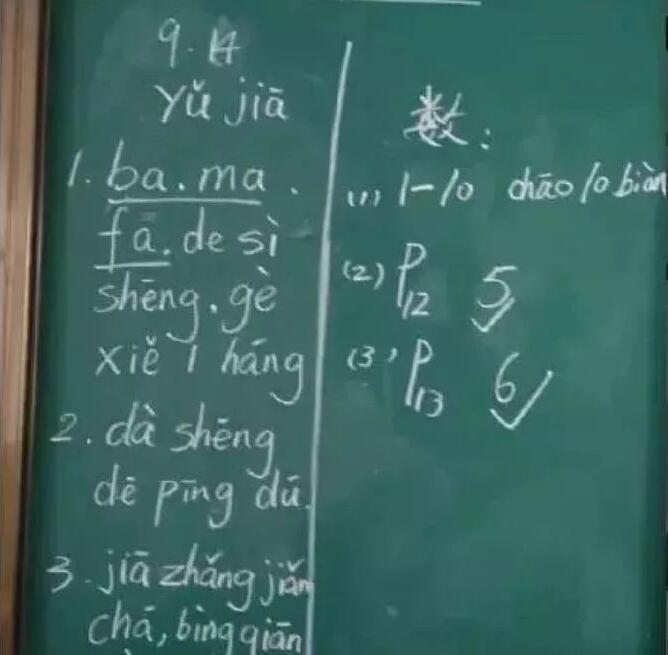 9.14
Yǔ jiā
1. ba.ma.
fā.de sì
shēng.gè
xiě 1 háng
2. dà shēng
dē pīng dū.
3. jiā zhǎng jiǎn
chá, bìng qiān
数:
(1) 1-10 chāo 10 biàn
(2) P12 5
(3) P13 6